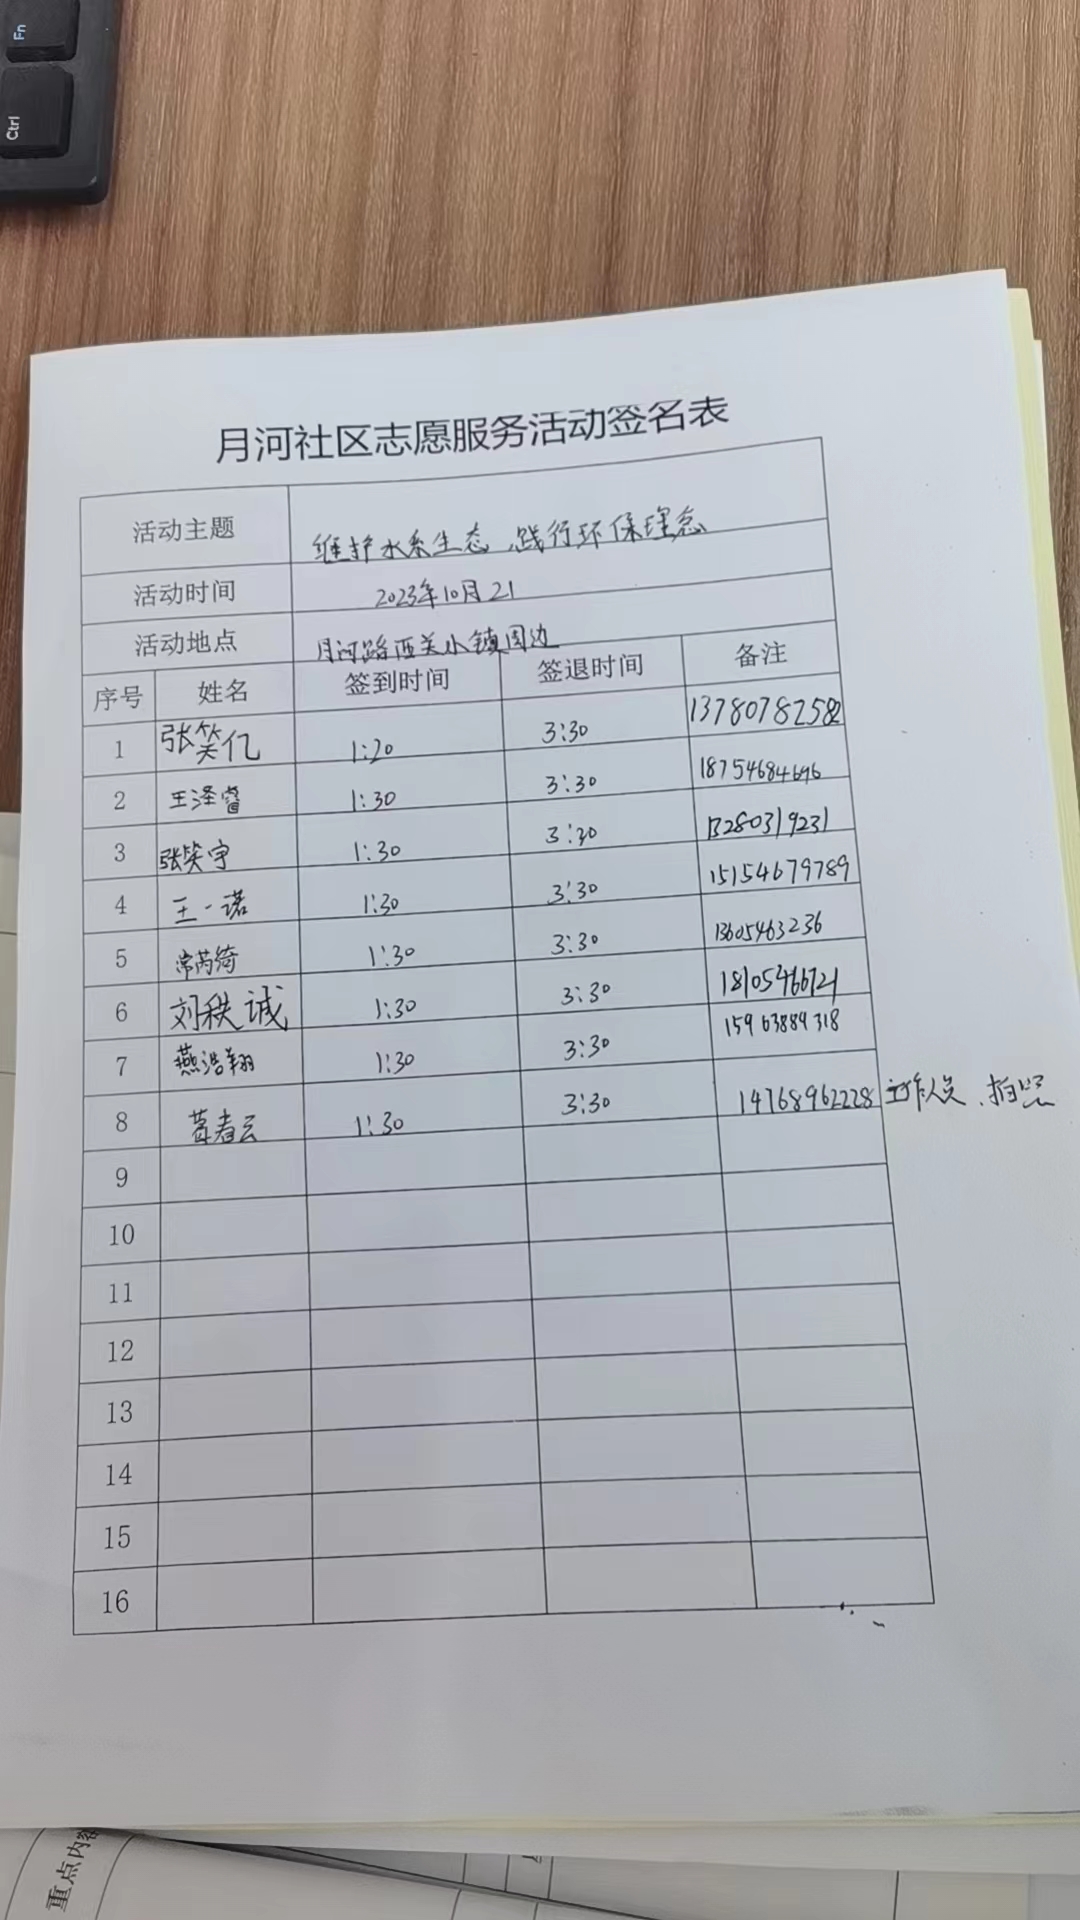 Fn
Ctrl
月河社区志愿服务活动签名表
活动主题 维护水系生态、践行环保理念
活动时间 2023年10月21
活动地点 月河路西关小镇周边
序号 姓名 签到时间 签退时间 备注
1 张笑亿 1:20 3:30 13780787582
2 王泽睿 1:30 3:30 18754684696
3 张笑宇 1:30 3:30 13280319231
4 王一诺 1:30 3:30 15154679789
5 常芮绮 1:30 3:30 13605463236
6 刘秩诚 1:30 3:30 18105466721
7 燕浩翔 1:30 3:30 15963884318
8 1:30 3:30 14768962228 工作人员、拍照
9
10
11
12
13
14
15
16
重点内容